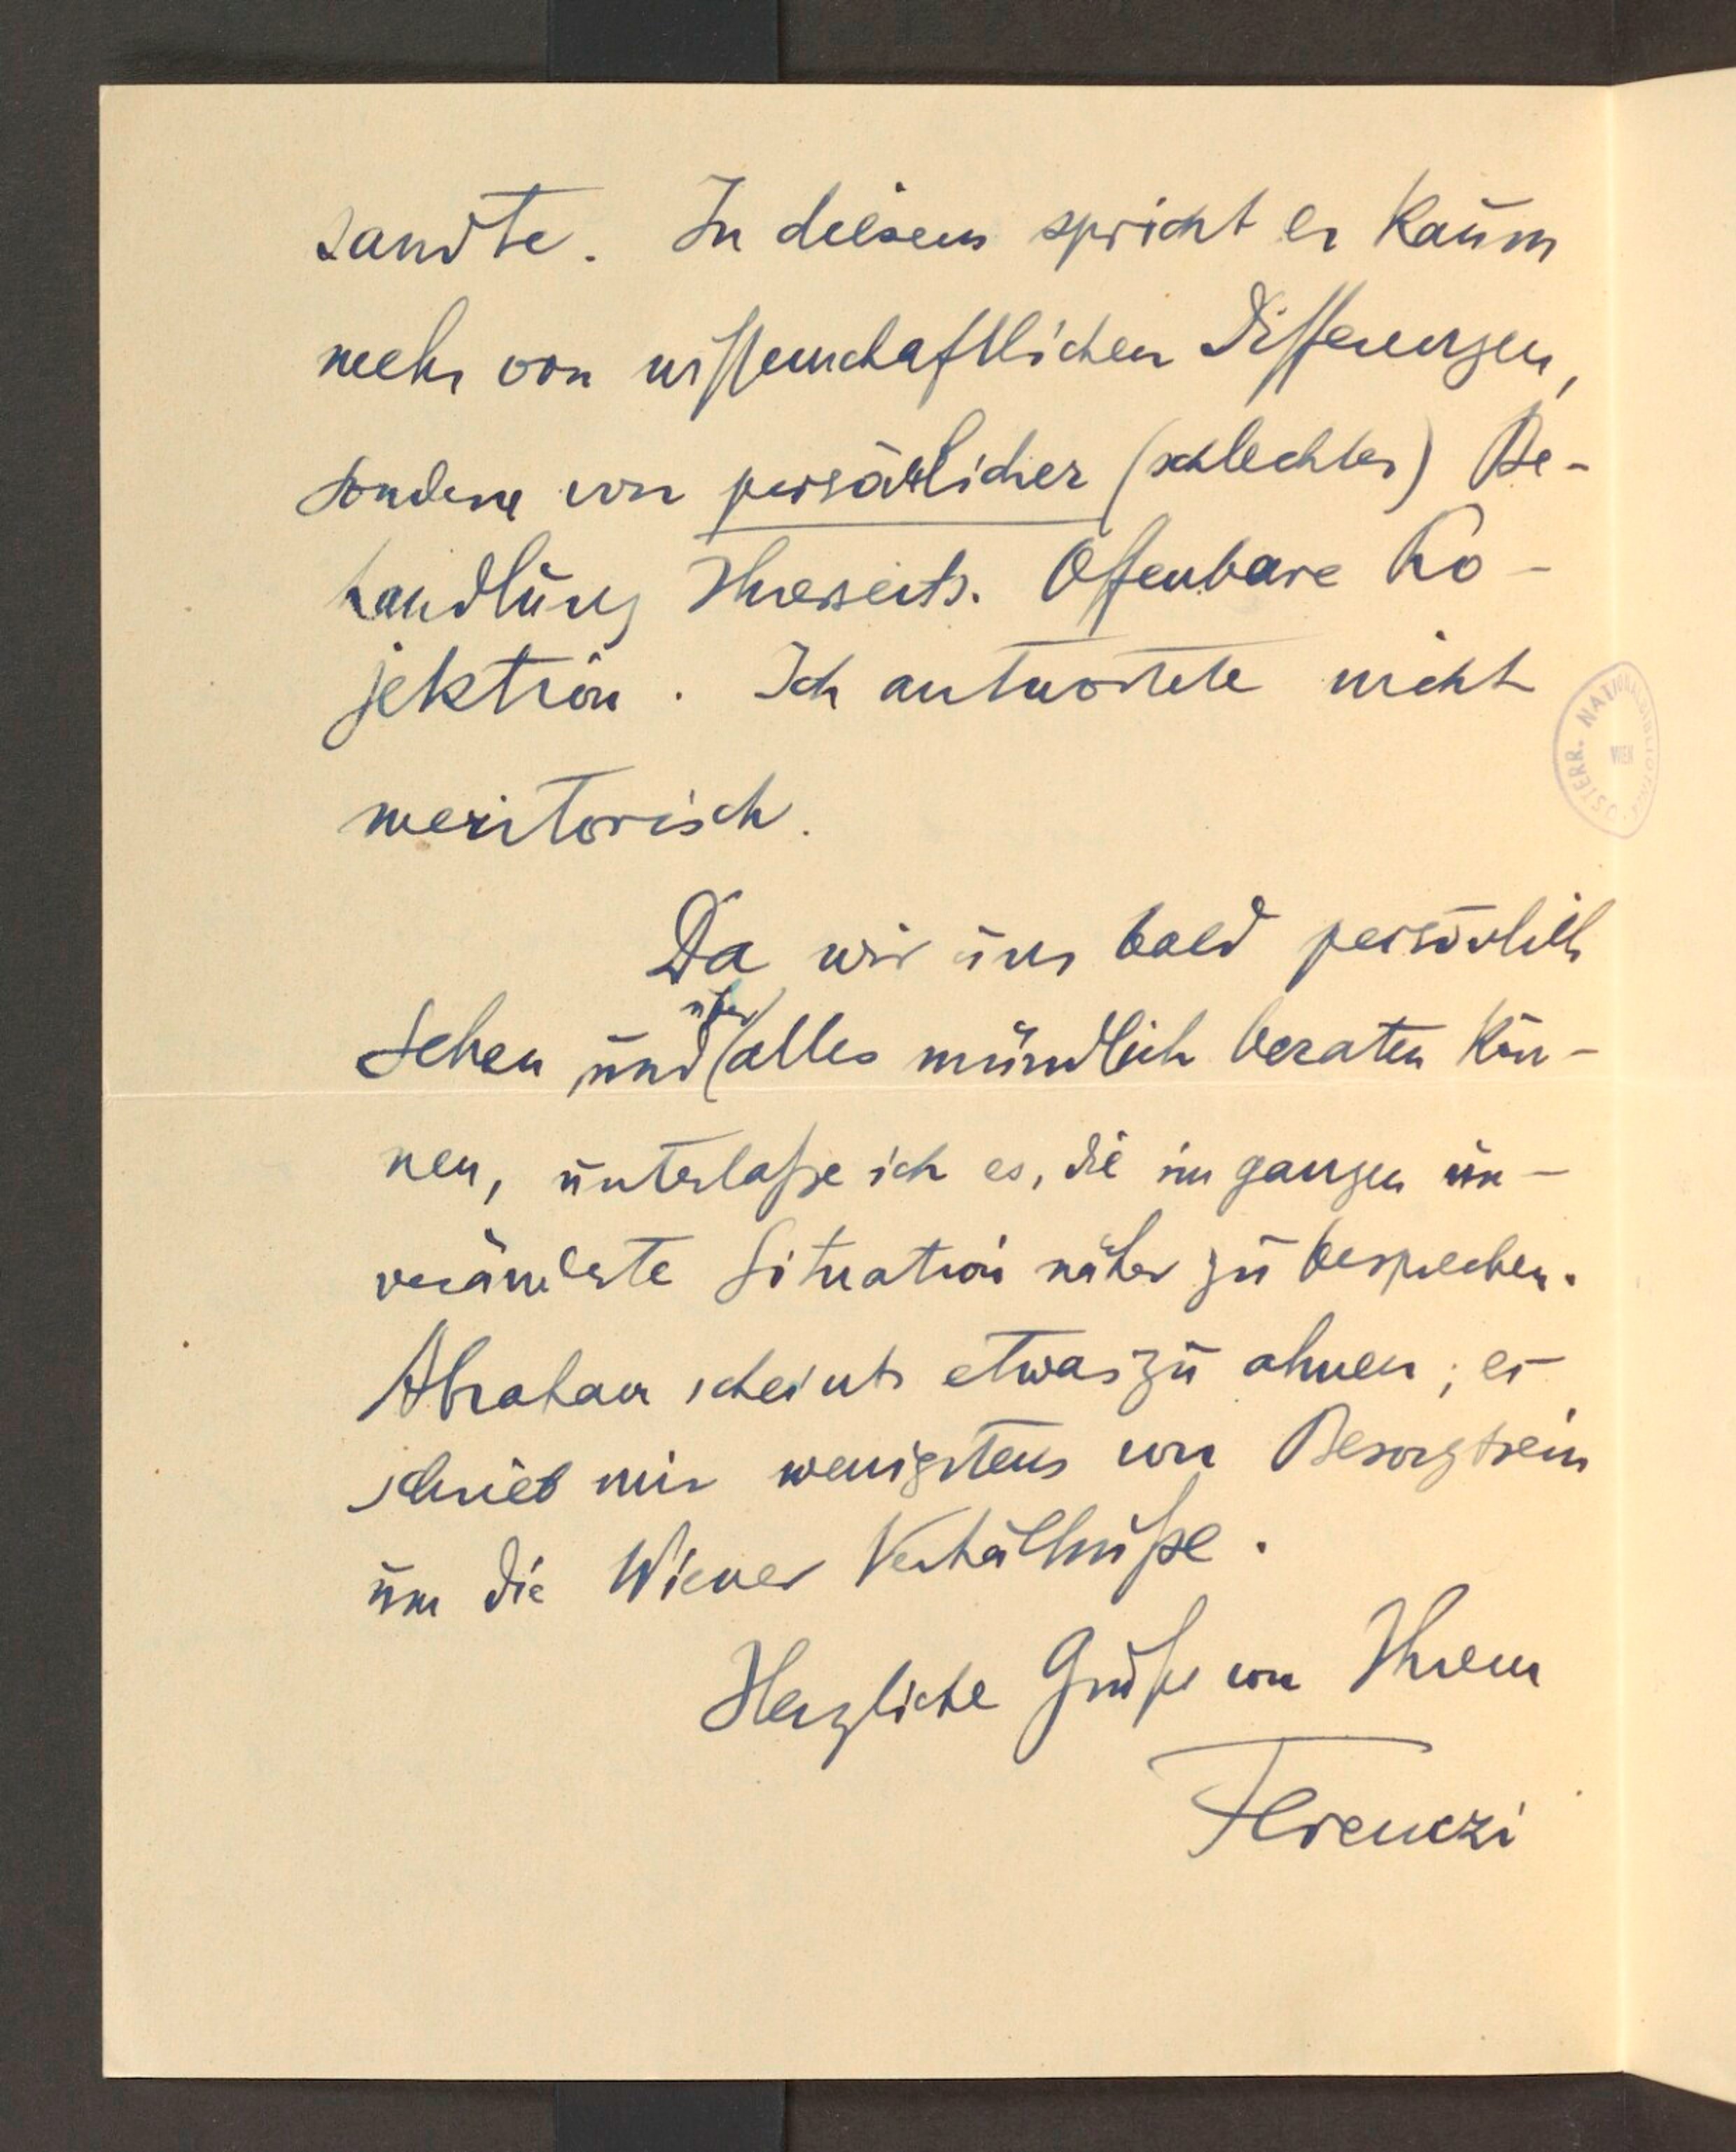 sandte. In diesem spricht er kaum
mehr von wissenschaftlichen Differenzen,
sondern von persönlicher (schlechter) Be-
handlung Ihrerseits. Offenbare Pro-
jektion. Ich antwortete nicht
meritorisch.
ÖSTERR. NATIONALBIBLIOTHEK WIEN
Da wir uns bald persönlich
sehen und über alles mündlich beraten kön-
nen, unterlaße ich es, die im ganzen un-
veränderte Situation näher zu besprechen.
Abraham scheint etwas zu ahnen; er
schrieb mir wenigstens von Besorgtsein
um die Wiener Verhältniße.
Herzliche Grüße von Ihrem
Ferenczi